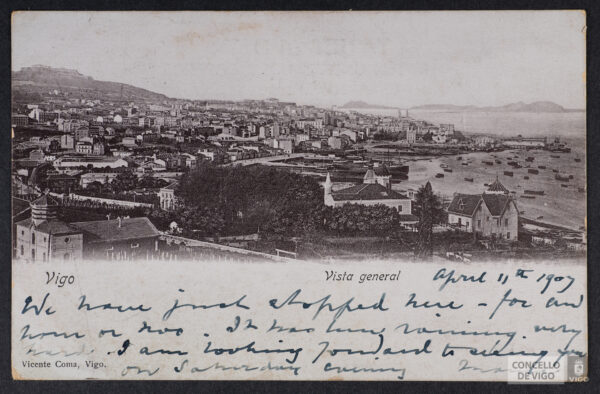 Vigo
Vista general
April 11th 1907
We have just stopped here - for an
hour or two. It has been raining very
hard. I am looking forward to seeing you
on Saturday evening
Vicente Coma, Vigo.
CONCELLO
DE VIGO
VIGO